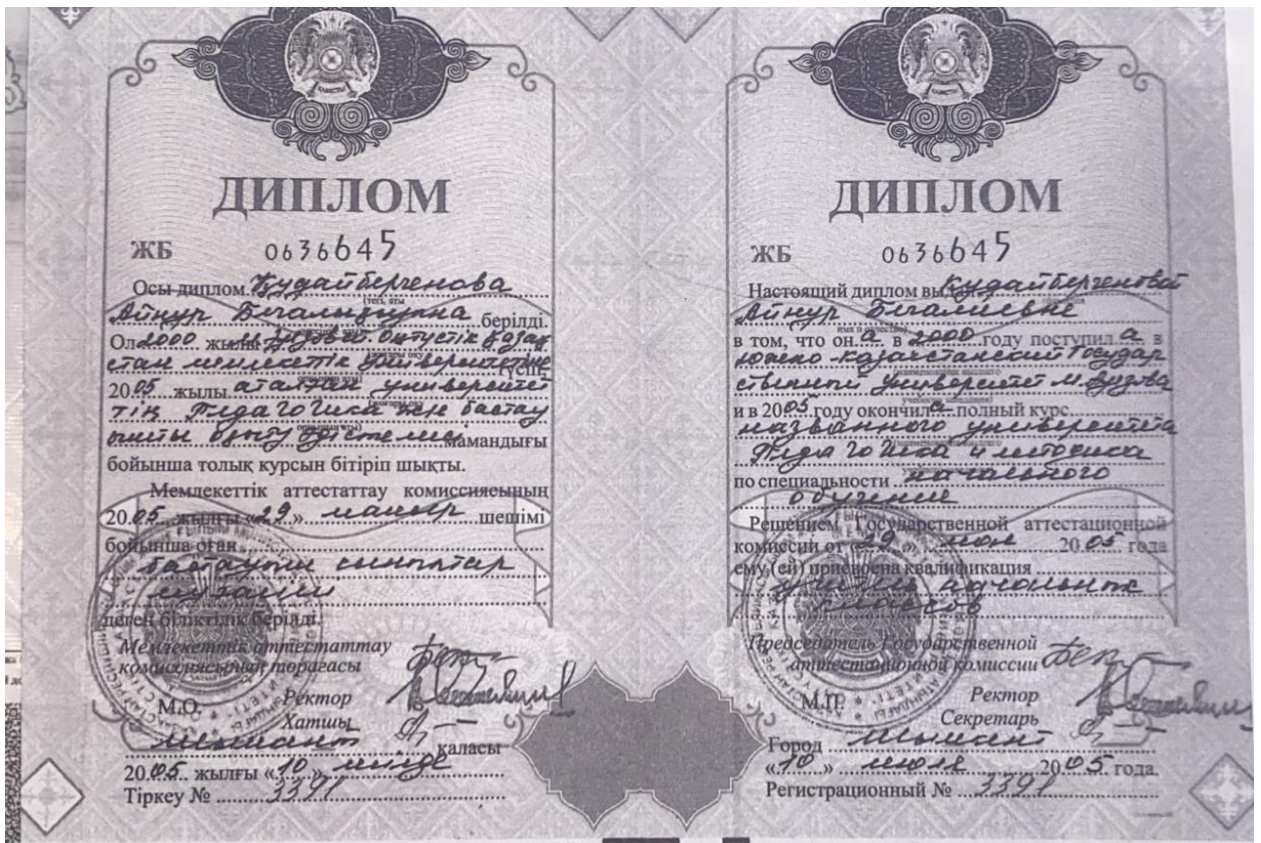 ДИПЛОМ
ЖБ 0636645
Осы диплом Құдайбергенова
Айнур
берілді.
Ол 2000 жылы Оңтүстік Қазақ
стан мемлекеттік университетіне
2005 жылы аталған университет
тің Педагогика және бастау
оқыту әдістемесі мамандығы
бойынша толық курсын бітіріп шықты.
Мемлекеттік аттестаттау комиссиясының
2005 жылғы «29» шешімі
бойынша оған
сыныптар
мұғалімі
деген біліктілік берілді.
Мемлекеттік аттестаттау
комиссиясының төрағасы
М.О. Ректор
Хатшы
Шымкент қаласы
2005 жылғы «10» шілде
Тіркеу № 3391
ДИПЛОМ
ЖБ 0636645
Настоящий диплом выдан Кудайбергеновой
Айнур
в том, что он а в 2000 году поступил а в
Южно-Казахстанский Государ
ственный университет М. Ауэзова
и в 2005 году окончил а полный курс
названного университета
Педагогика и методика
по специальности начального
обучения
Решением Государственной аттестационной
комиссии от «29» 2005 года
ему (ей) присвоена квалификация
учитель начальных
классов
Председатель Государственной
аттестационной комиссии
М.П. Ректор
Секретарь
Город Шымкент
«10» июля 2005 года.
Регистрационный № 3391